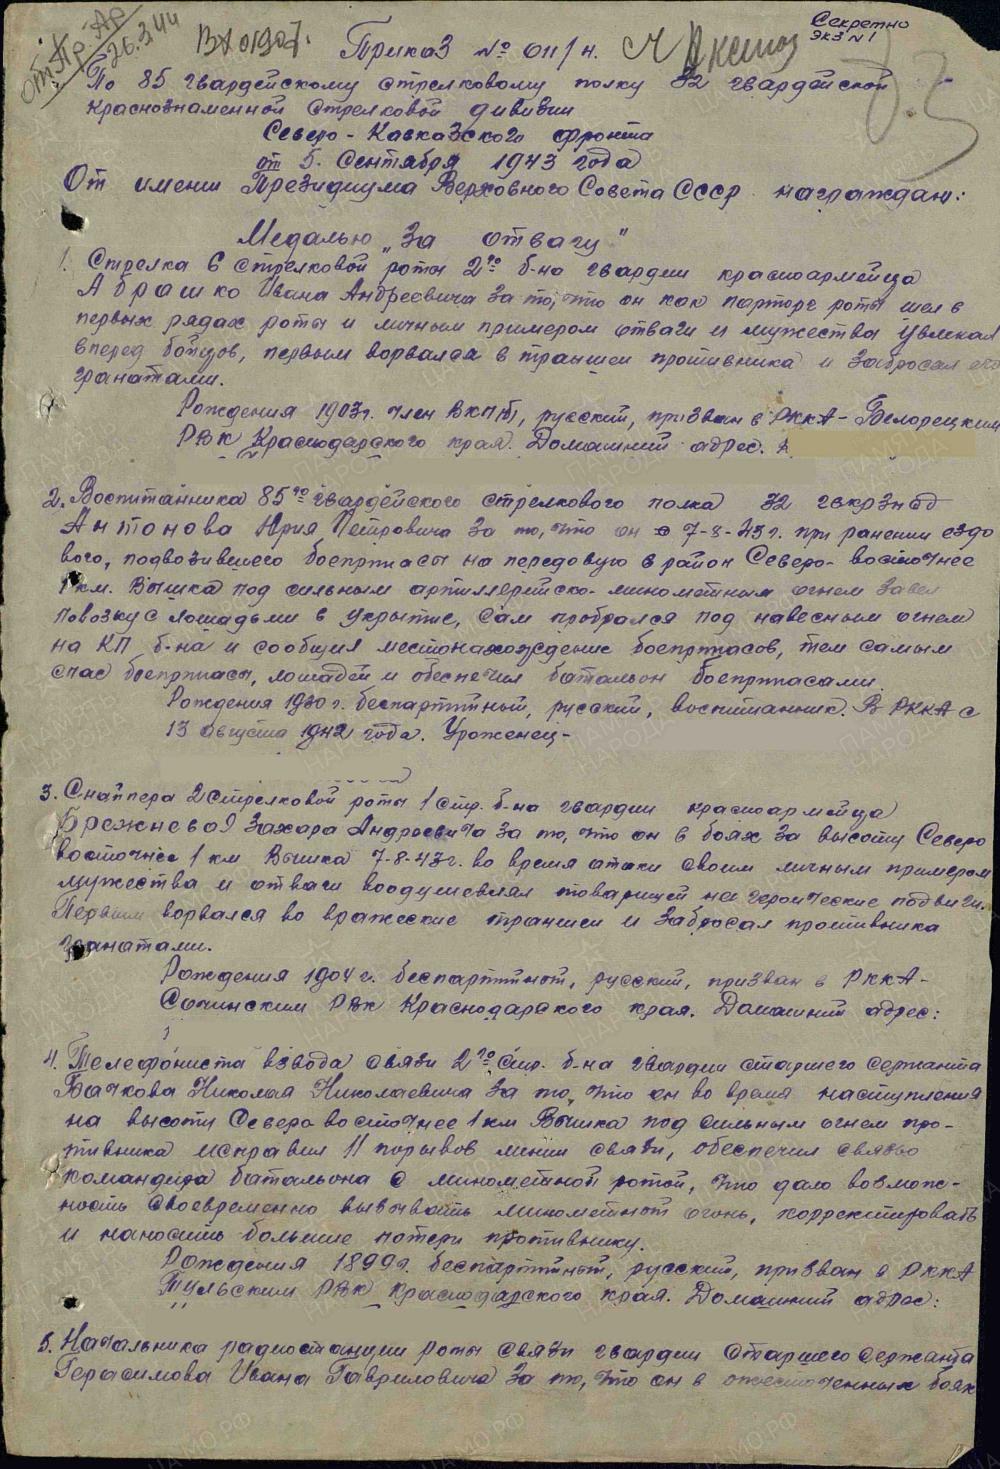 от Пр-Ар
26.3.44
Вх 01907.
Секретно
Экз N 1
Приказ № 011/н.
По 85 гвардейскому стрелковому полку 32 гвардейской
краснознаменной стрелковой дивизии
Северо-Кавказского фронта
от 5. Сентября 1943 года
От имени Президиума Верховного Совета СССР награждаю:
Медалью „За отвагу"
1. Стрелка 6 стрелковой роты 2го б-на гвардии красноармейца
Абрашко Ивана Андреевича за то, что он как парторг роты шел в
первых рядах роты и личным примером отваги и мужества увлекал
вперед бойцов, первым ворвался в траншеи противника и забросал его
гранатами.
Рождения 1903г. член ВКП(б), русский, призван в РККА - Белорецким
РВК Краснодарского края. Домашний адрес.
2. Воспитанника 85го гвардейского стрелкового полка 32 гвкрзнсд
Антонова Юрия Петровича за то, что он 7-8-43г. при ранении ездо
вого, подвозившего боеприпасы на передовую в район Северо-восточнее
1 км. Вышка под сильным артиллерийско-минометным огнем завел
повозку с лошадьми в укрытие, сам пробрался под навесным огнем
на КП б-на и сообщил местонахождение боеприпасов, тем самым
спас боеприпасы, лошадей и обеспечил батальон боеприпасами.
Рождения 1930г. беспартийный, русский, воспитанник. В РККА с
13 августа 1942 года. Уроженец-
3. Снайпера 2 стрелковой роты 1 стр. б-на гвардии красноармейца
Брежнева Захара Андреевича за то, что он в боях за высоту Северо
восточнее 1 км Вышка 7-8-43г. во время атаки своим личным примером
мужества и отваги воодушевлял товарищей на героические подвиги.
Первым ворвался во вражеские траншеи и забросал противника
гранатами.
Рождения 1904г. беспартийный, русский, призван в РККА-
Сочинским РВК Краснодарского края. Домашний адрес:
4. Телефониста взвода связи 2го стр. б-на гвардии старшего сержанта
Бачкова Николая Николаевича за то, что он во время наступления
на высоту Северо восточнее 1 км Вышка под сильным огнем про-
тивника исправил 11 порывов линии связи, обеспечил связью
командира батальона с минометной ротой, что дало возмож-
ность своевременно вызывать минометный огонь, корректировать
и наносить большие потери противнику.
Рождения 1899г. беспартийный, русский, призван в РККА
Тульским РВК Краснодарского края. Домашний адрес:
5. Начальника радиостанции роты связи гвардии старшего сержанта
Герасимова Ивана Гавриловича за то, что он в ожесточенных боях